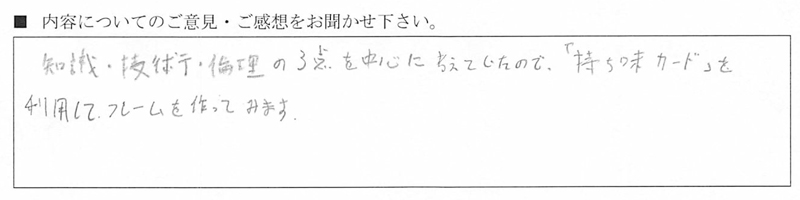 ■ 内容についてのご意見・ご感想をお聞かせ下さい。
知識・技術・倫理の3点を中心に考えていたので、「持ち味カード」を
利用して、フレームを作ってみます。